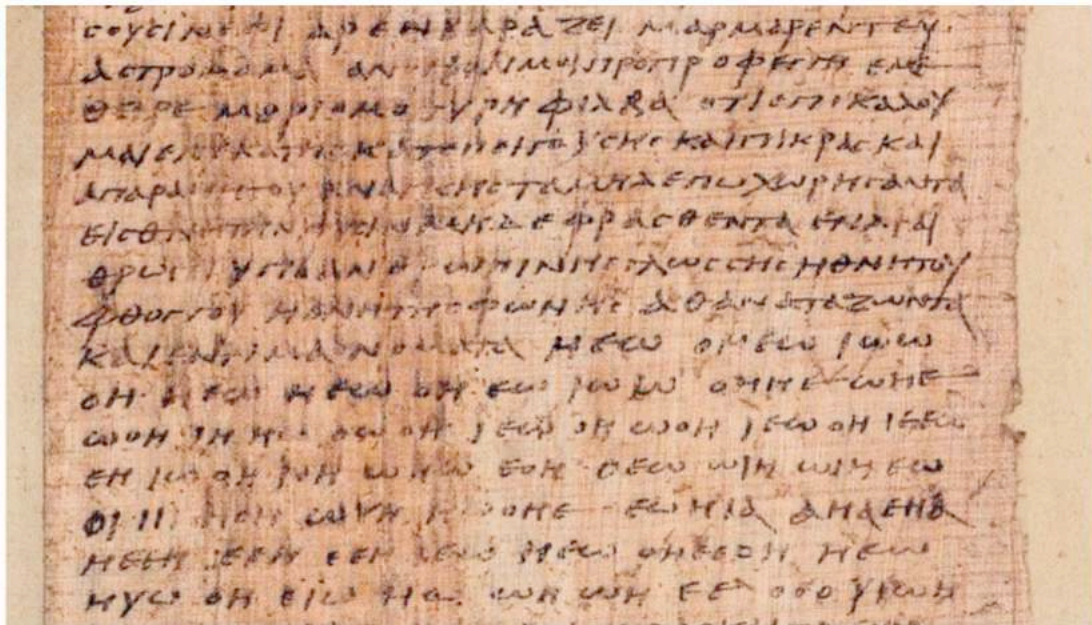 ϹΟΥϹΙΝΕΦΙ ΑΡΕΝ ΒΑΡΑΖΕΙ ΜΑΡΜΑΡΕΝΤΕΥ
ΠΡΟΠΡΟΦΕΓΓΗ ΕΜΕ
ΘΕΙΡΕ ΜΟΡΙΟΜΟΤΥΡΗΦΙΛΒΑ ΟΤΙ ΕΠΙΚΑΛΟΥ
ΜΑΙ ΕΝΕΚΑ ΤΗϹ ΚΑΤΕΠΕΙΓΟΥϹΗϹ ΚΑΙ ΠΙΚΡΑϹ ΚΑΙ
ΑΠΑΡΑΙΤΗΤΟΥ ΑΝΑΓΚΗϹ ΤΑ ΜΗΔΕΠΩ ΧΩΡΗϹΑΝΤΑ
ΕΙϹ ΘΝΗΤΗΝ ΦΥϹΙΝ ΜΗΔΕ ΦΡΑϹΘΕΝΤΑ ΕΝ ΔΙΑΡ
ΘΡΩϹΕΙ ΥΠΟ ΑΝΘΡΩΠΙΝΗϹ ΓΛΩϹϹΗϹ Η ΘΝΗΤΟΥ
ΦΘΟΓΓΟΥ Η ΘΝΗΤΗϹ ΦΩΝΗϹ ΑΘΑΝΑΤΑ ΖΩΝΤΑ
ΚΑΙ ΕΝΤΙΜΑ ΟΝΟΜΑΤΑ ΗΕΩ ΟΗΕΩ ΙΩΩ
ΟΗ ΗΕΩ ΗΕΩ ΟΗ ΕΩ ΙΩΩ ΟΗΗΕ ΩΗΕ
ΩΟΗ ΙΗ ΗΩ ΟΩ ΟΗ ΙΕΩ ΟΗ ΩΟΗ ΙΕΩ ΟΗ ΙΕΕΩ
ΕΗ ΙΩ ΟΗ ΙΟΗ ΩΗΩ ΕΟΗ ΟΕΩ ΩΙΗ ΩΙΗ ΕΩ
ΟΙ ΙΙΙ ΗΟΗ ΩΥΗ ΗΩΟΗΕ ΕΩ ΗΙΑ ΑΗΑ ΕΗΑ
ΗΕΕΗ ΕΕΗ ΕΕΗ ΙΕΩ ΗΕΩ ΟΗΕΕΟΗ ΗΕΩ
ΗΥΩ ΟΗ ΕΙΩ ΗΩ ΩΗ ΩΗ ΕΕ ΟΟΟ ΥΙΩΗ